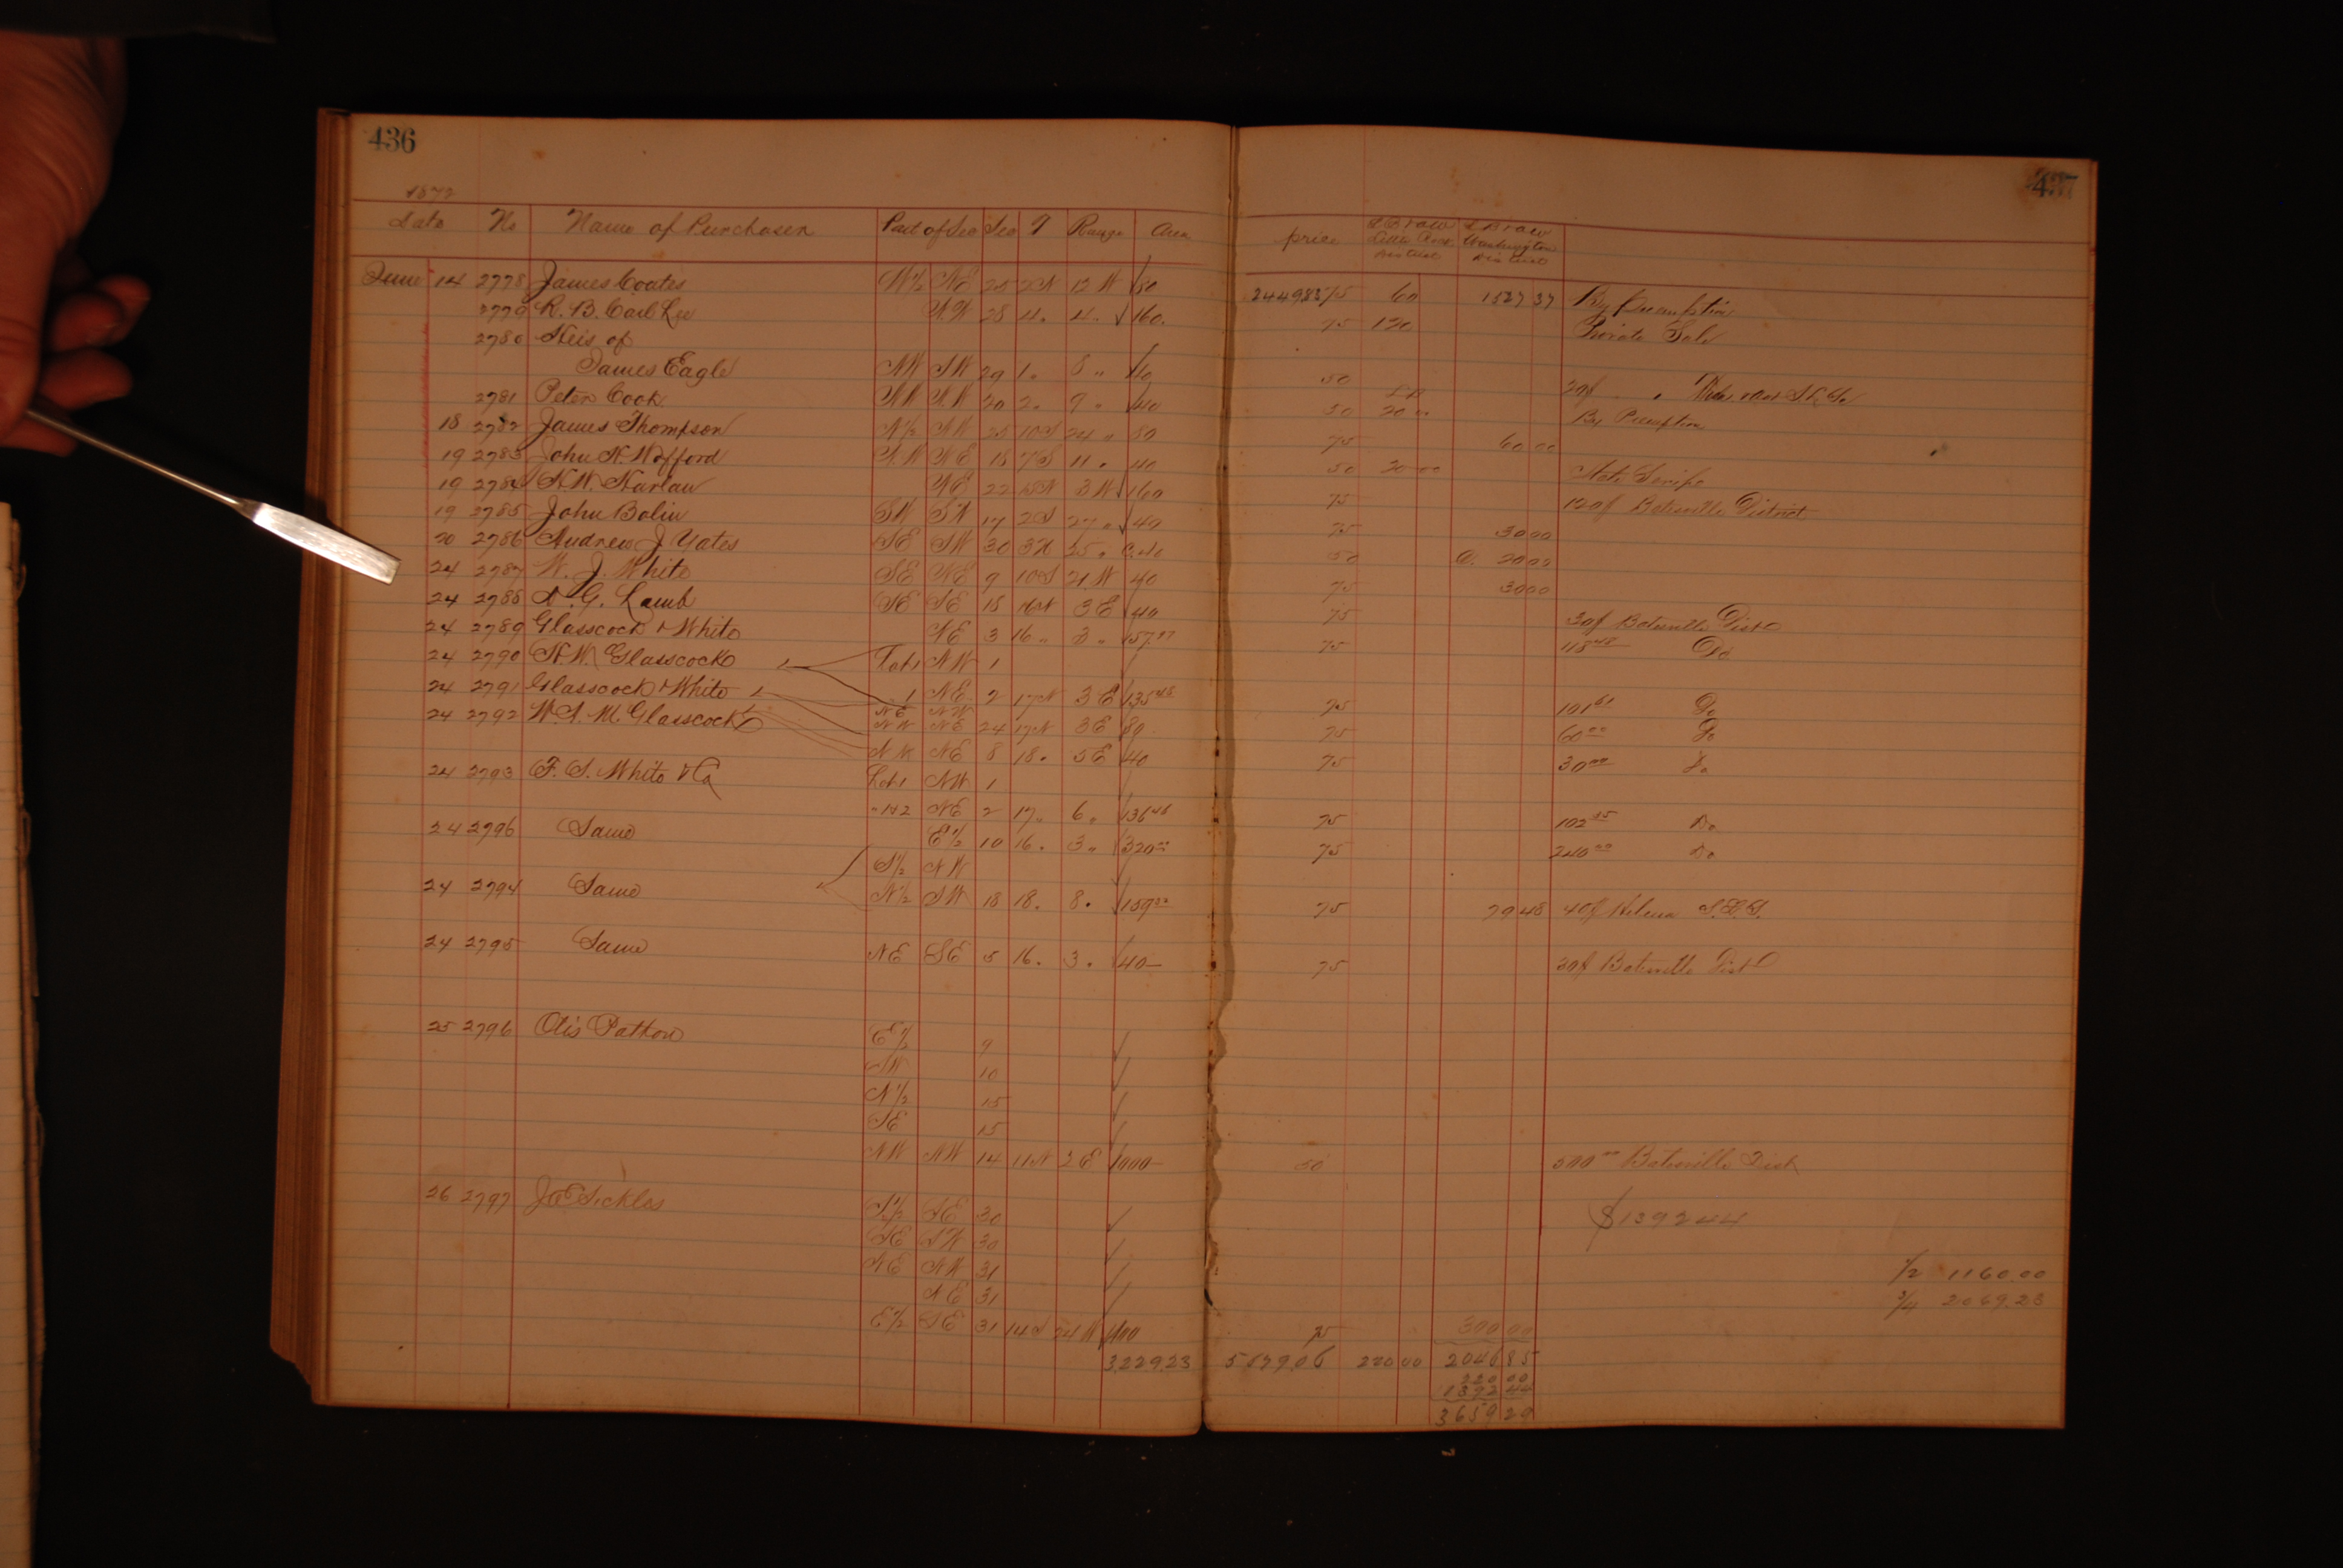 436
1872
Date No Name of Purchaser Part of Sec Sec T Range Area
June 14 2778 James Coates W½ NE 25 2N 12 W 80
2779 R. B. Carl Lee 28 4 " 4 " 160.
2780 Heis of
James Eagle NW SW 29 1 " 8 " 40
2781 Peter Cook 20 2 " 9 " 40
18 2782 James Thompson 25 10S 24 " 80
19 2783 John N. Wofford NE 18 7S 11 " 40
19 2784 H. W. Harlan NE 22 18N 3 W 160
19 2785 John Bolin SW 17 20S 27 " 40
20 2786 Andrew J Yates SE SW 30 25 " 40
24 2787 W. J. White SE NE 9 10S 21 W 40
24 2788 D. G. Lamb SE SE 18 16N 3 E 40
24 2789 Glasscock & White NE 3 16 " 3 " 157.97
24 2790 H. W. Glasscock Lot 1 NW 1
24 2791 Glasscock & White 1 NE 2 17N 3 E 135 48
NE NW
24 2792 W. S. M. Glasscock NW NE 24 17N 3E 80
NW NE 8 18 " 5E 40
24 2793 F. S. White & Co Lot 1 NW 1
" 1&2 NE 2 17 " 6 " 136 46
24 2796 Same E½ 10 16 " 3 " 320 00
S½ NW
24 2794 Same N½ SW 18 18 " 8 " 159
24 2795 Same NE SE 5 16 " 3 " 40
25 2796 Otis Patton E½ 9
SW 10
N½ 15
SE 15
NW NW 14 11N 2 E 1000
26 2797 Sickles S½ SE 30
SE SW 30
NE NW 31
NE 31
E½ SE 31 14S 24 W 400
3,229.23
437
price Little Rock District Washington District
75 60 1527 37 By Preemption
75 120 Private Sale
50
50 20 00 By Preemption
75 60 00
50 20 00 State Scrip
75 120 of Batesville District
75 30 00
50 20 00
75 30 00
75 30 of Batesville Dist
75 118 48 Do
75 101 61 Do
75 60 00 Do
75 30 00 Do
75 102 35 Do
75 240 00 Do
75 79 48 40 of Helena
75 30 of Batesville Dist
50 500 00 Batesville Dist
$1392 44
½ 1160.00
¾ 2069.23
75 300 00
220 00 2046 85
220 00
1392 44
3659 29